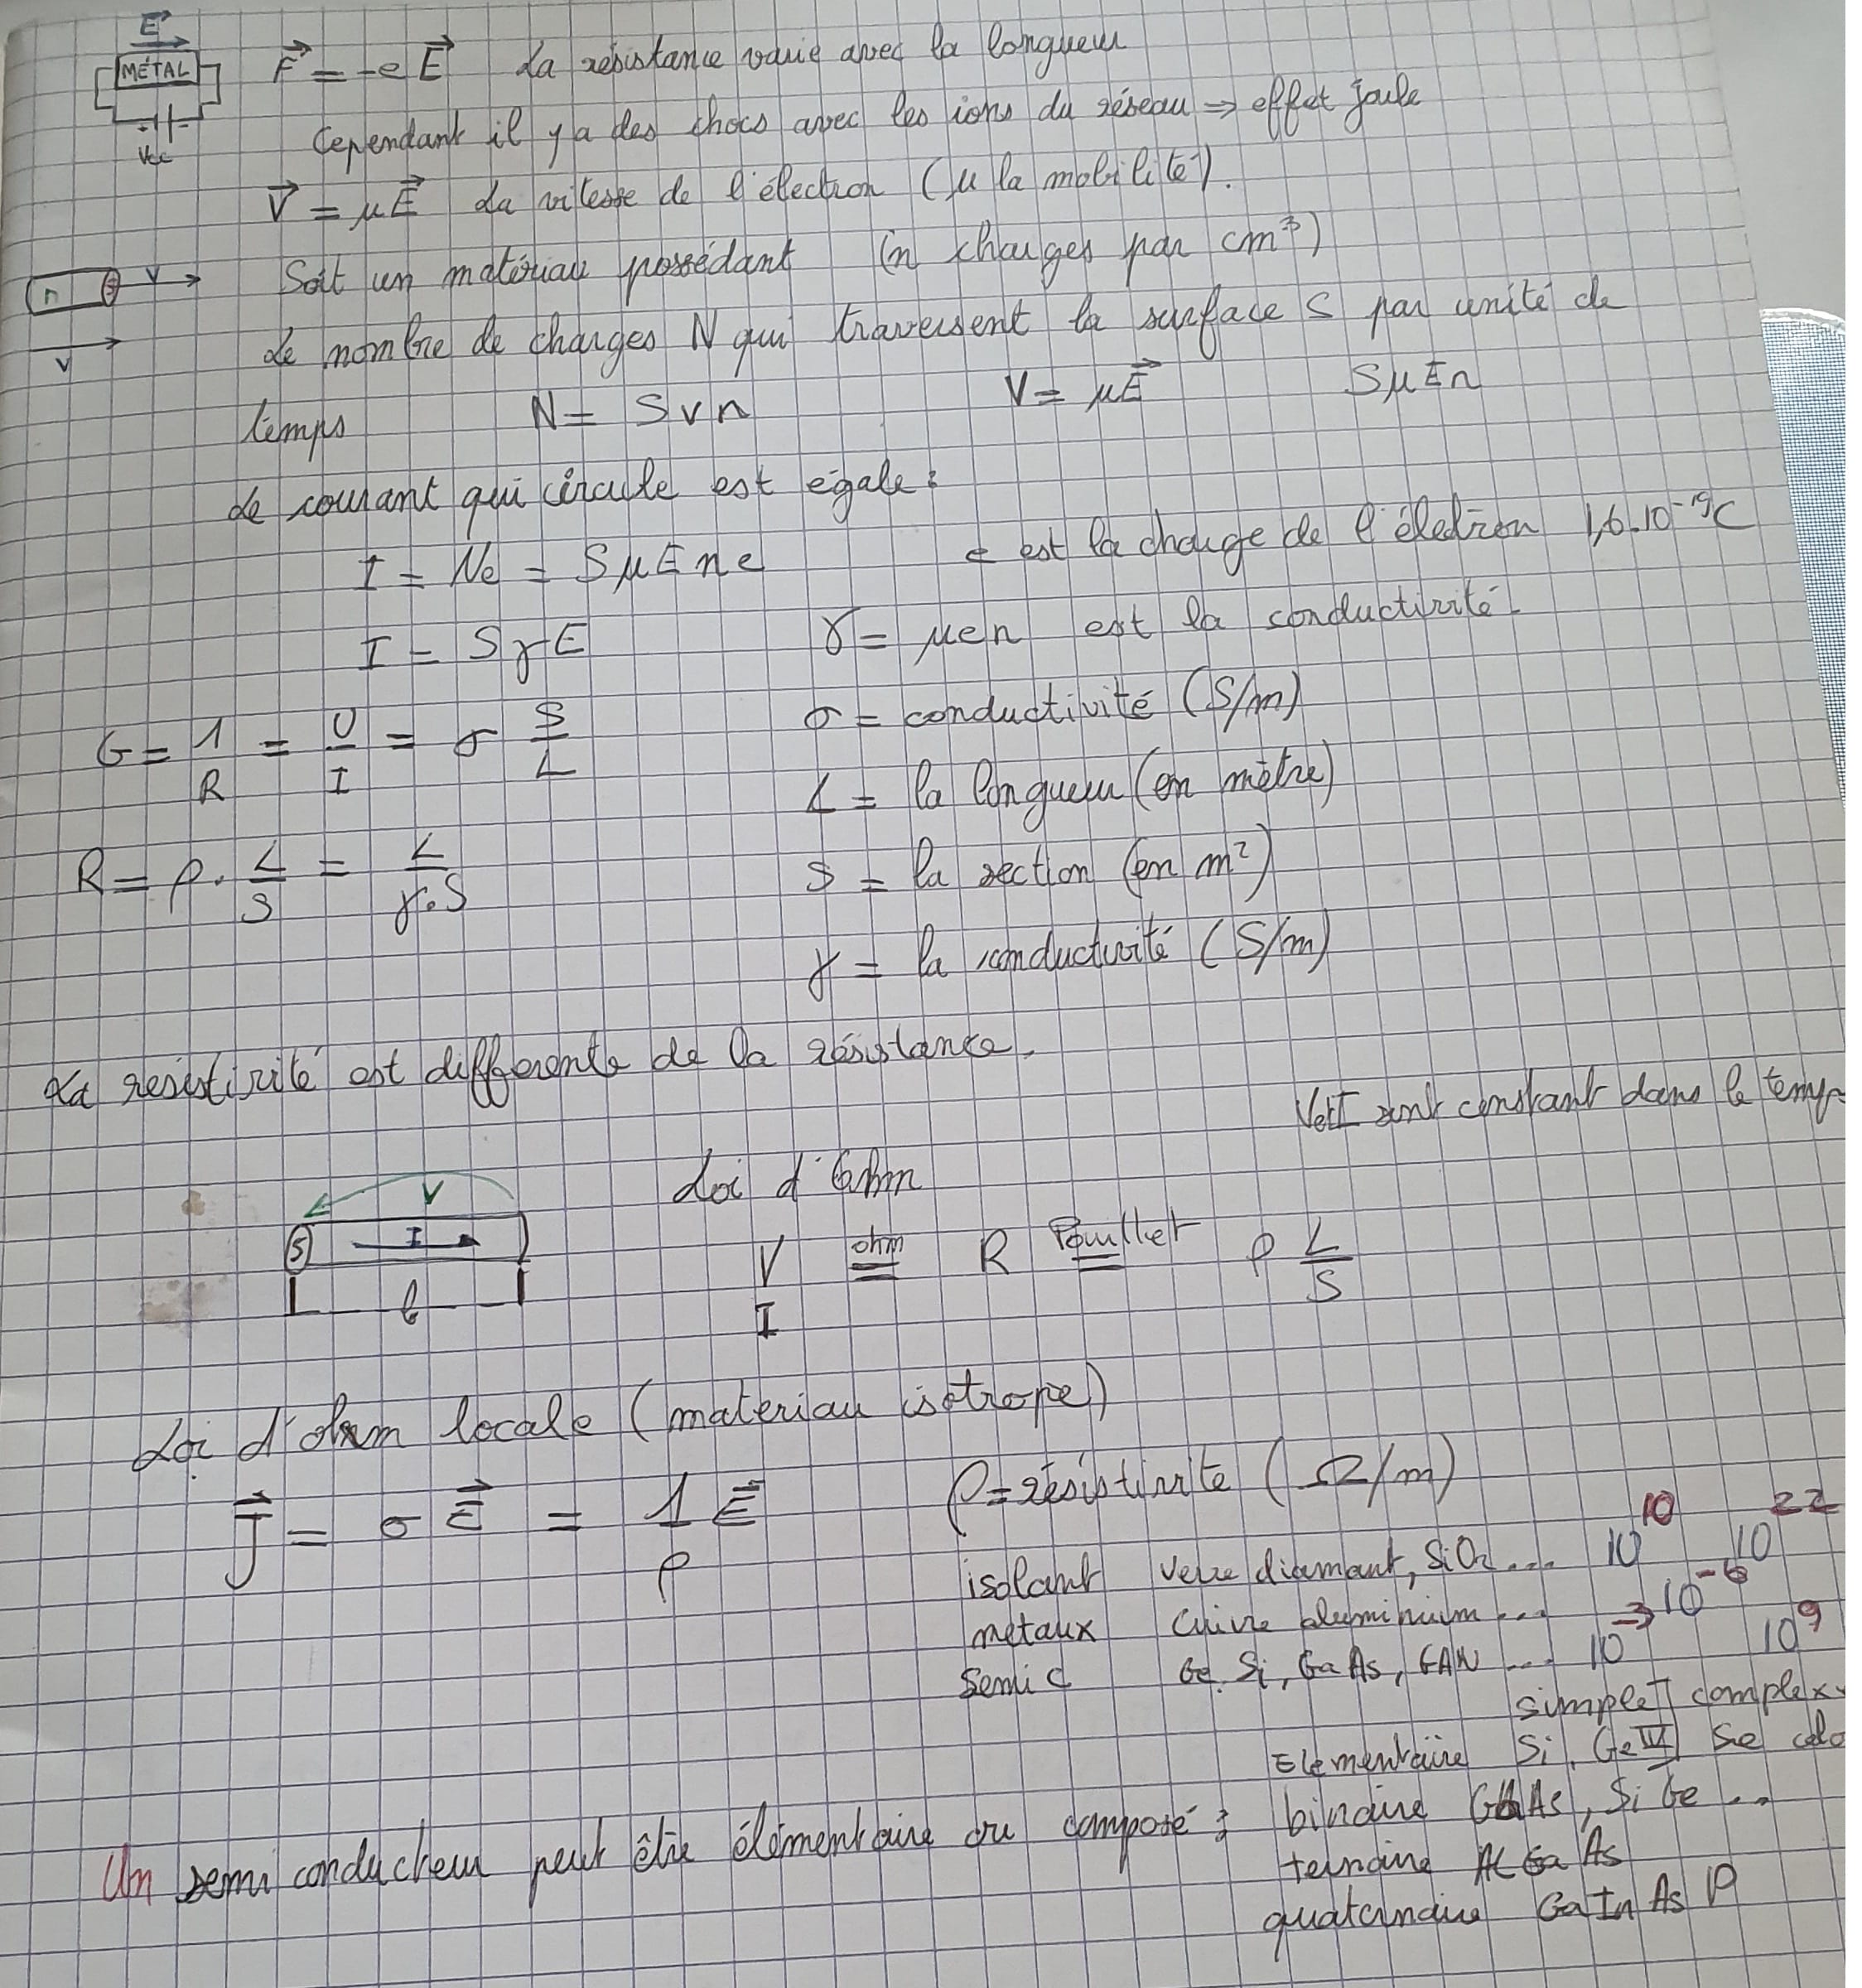 E
MÉTAL
Vcc
F = -e E La résistance varie avec la longueur
Cependant il y a des chocs avec les ions du réseau ⇒ effet joule
V = μE La vitesse de l'électron (μ la mobilité).
n V
V
Soit un matériau possédant (n charges par cm³)
Le nombre de charges N qui traversent la surface S par unité de
temps N = S v n V = μE SμEn
Le courant qui circule est égale :
I = Ne = SμEne e est la charge de l'électron 1,6.10⁻¹⁹C
I = SγE γ = μen est la conductivité.
G = 1/R = U/I = σ S/L σ = conductivité (S/m)
L = la longueur (en mètre)
R = ρ. L/S = L/γ.S S = la section (en m²)
γ = la conductivité (S/m)
La résistivité est differente de la résistance.
V et I sont constant dans le temp
V
S I
l
Loi d'Ohm
V/I =ohm R =Pouillet ρ L/S
Loi d'ohm locale (materiau isotrope)
J = σ E = 1/ρ E ρ = résistivite (Ω/m)
isolant verre diamant, SiO₂ ... 10¹⁰ 10²²
metaux cuivre aluminium ... 10⁻⁶
Semi C Ge, Si, GaAs, GAN ... 10⁻³ 10⁹
simple complex
Elementaire Si, Ge IV Se
Un semi conducteur peut être élémentaire ou composé : binaire GaAs, SiGe ...
ternaire Al Ga As
quaternaire Ga In As P